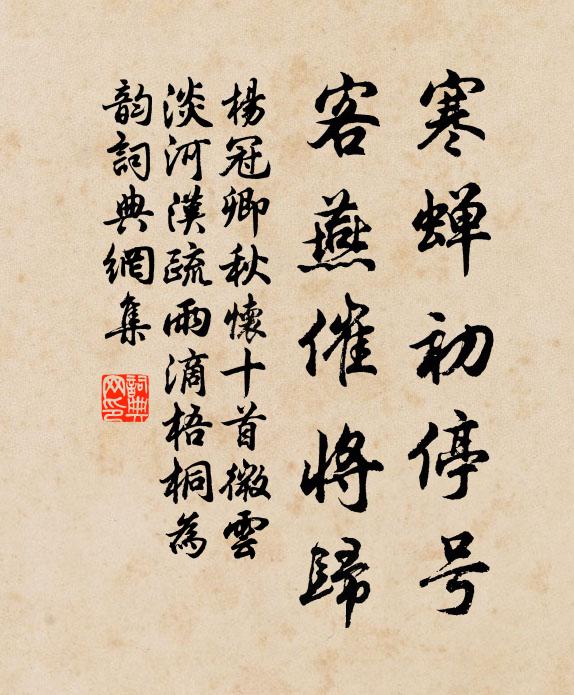 寒蝉初停号
客燕催将歸
楊冠卿秋懷十首微雲
淡河漢疏雨滴梧桐為
韵詞典網集
詞典網印